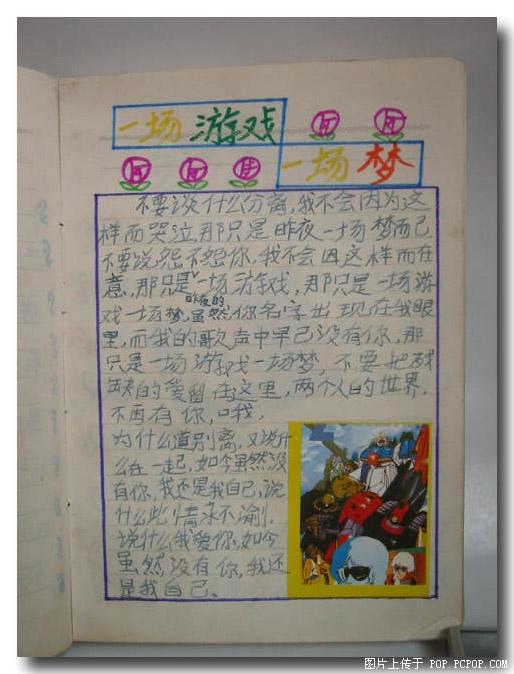 一场 游戏
一场 梦
不要谈什么分离,我不会因为这
样而哭泣,那只是昨夜一场梦而已
不要说怨不怨你,我不会因这样而在
意,那只是一场游戏,那只是一场游
戏一场梦,虽然昨夜的你名字出现在我眼
里,而我的歌声中早已没有你,那
只是一场游戏一场梦,不要把残
缺的爱留在这里,两个人的世界,
不再有你,哦,
为什么道别离,又说什
么在一起,如今虽然没
有你,我还是我自己,说
什么此情永不渝,
说什么我爱你,如今
虽然没有你,我还
是我自己、
图片上传于 POP.PCPOP.COM